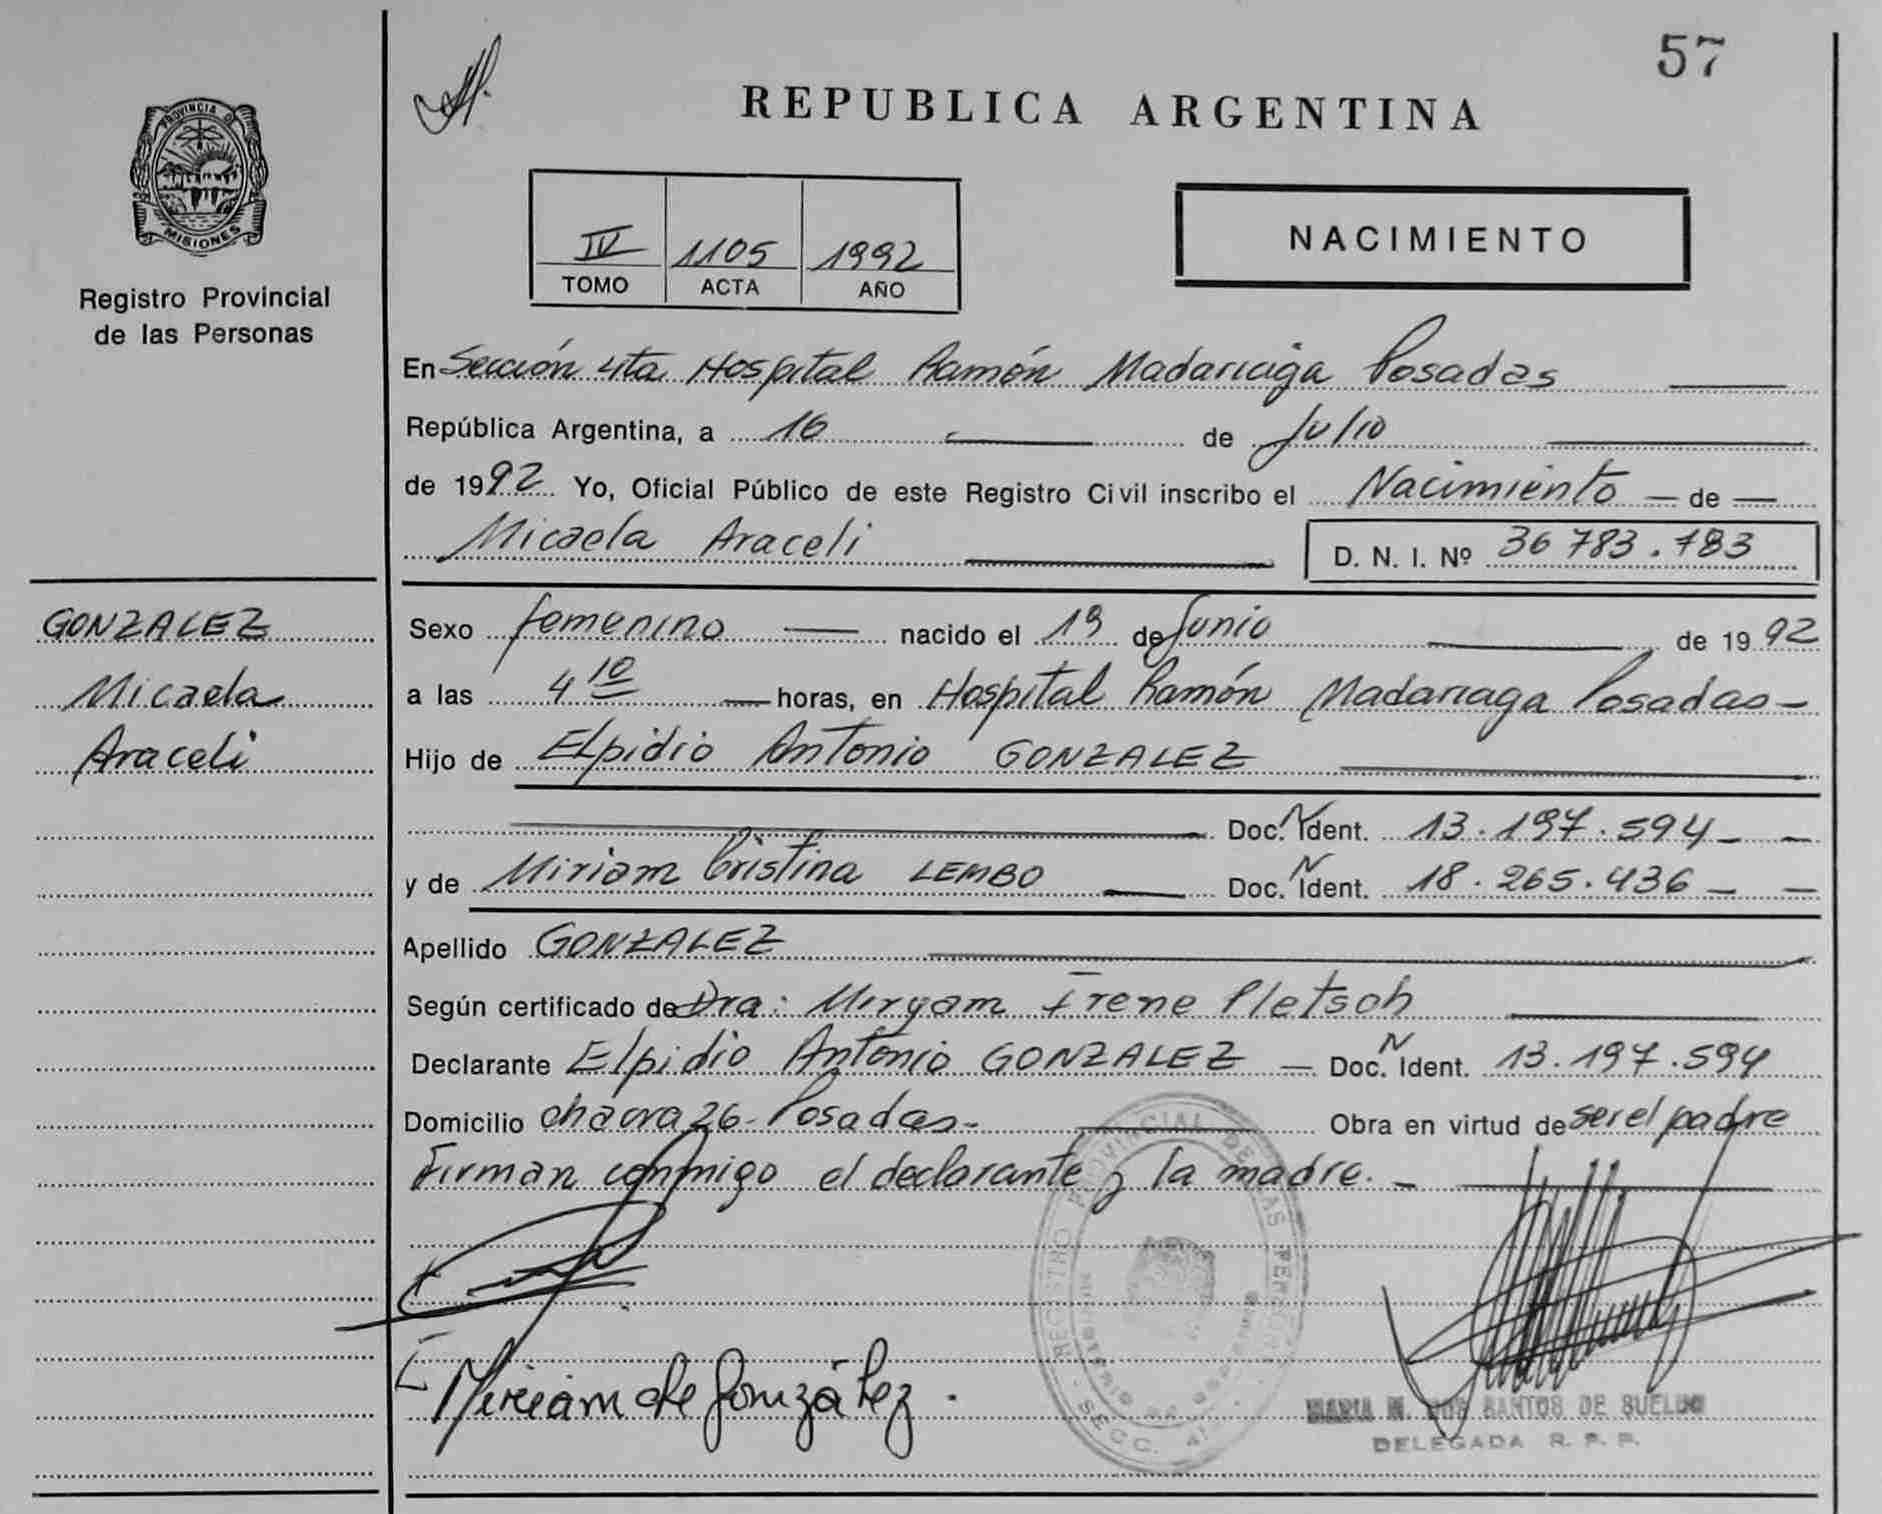 57
REPUBLICA ARGENTINA
PROVINCIA D
MISIONES
Registro Provincial
de las Personas
IV 1105 1992
TOMO ACTA AÑO
NACIMIENTO
En Sección 4ta Hospital Ramón Madariaga Posadas
República Argentina, a 16 de Julio
de 1992 Yo, Oficial Público de este Registro Civil inscribo el Nacimiento de
Micaela Araceli D. N. I. Nº 36 783.783
GONZALEZ
Micaela
Araceli
Sexo femenino nacido el 19 de Junio de 1992
a las 4 10 horas, en Hospital Ramón Madariaga Posadas
Hijo de Elpidio Antonio GONZALEZ
Doc. N Ident. 13.197.594
y de Miriam Cristina LEMBO Doc. N Ident. 18.265.436
Apellido GONZALEZ
Según certificado de Dra: Miryam Irene Pletsch
Declarante Elpidio Antonio GONZALEZ Doc. N Ident. 13.197.594
Domicilio chacra 26 - Posadas.- Obra en virtud de ser el padre
Firman conmigo el declarante y la madre.
Miriam de González.
REGISTRO PROVINCIAL DE LAS PERSONAS
SECC. 4
MARIA M. DOS SANTOS DE SUELDO
DELEGADA R. P. P.